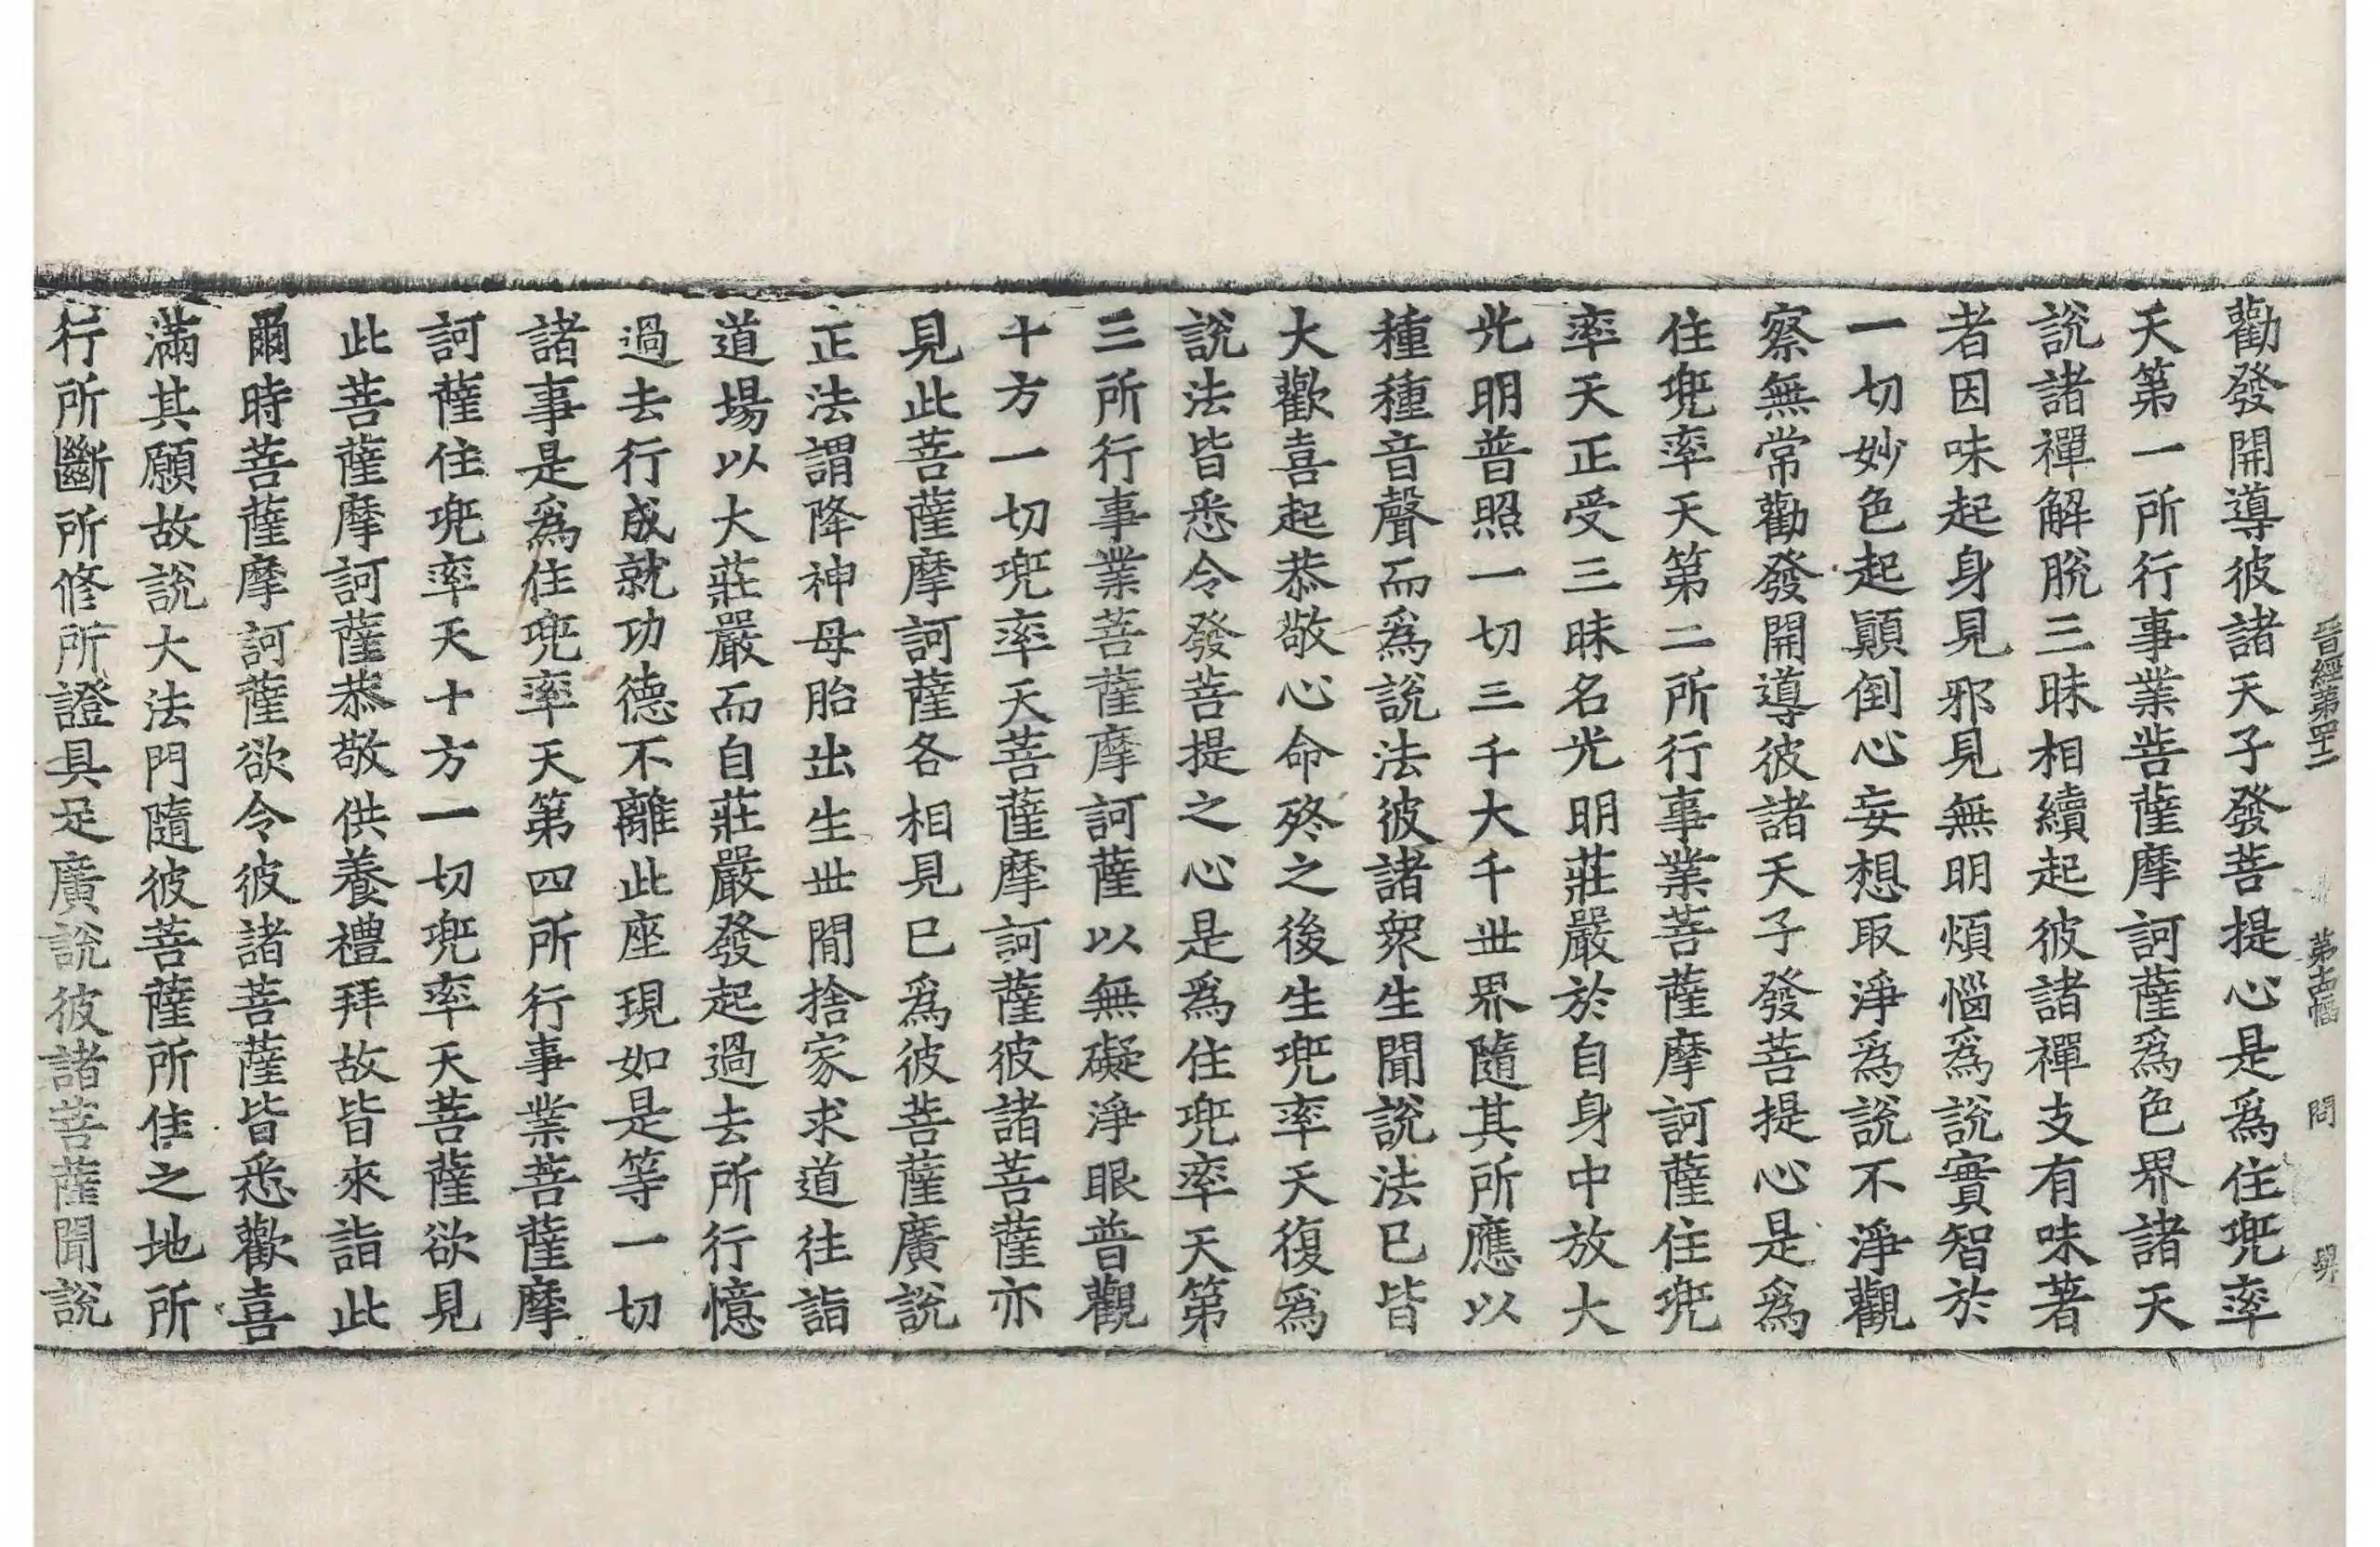 晋經第四十二 第十四幅 問 興
勸發開導彼諸天子發菩提心是爲住兜率
天第一所行事業菩薩摩訶薩爲色界諸天
說諸禪解脫三昧相續起彼諸禪支有味著
者因味起身見邪見無明煩惱爲說實智於
一切妙色起顚倒心妄想取淨爲說不淨觀
察無常勸發開導彼諸天子發菩提心是爲
住兜率天第二所行事業菩薩摩訶薩住兜
率天正受三昧名光明莊嚴於自身中放大
光明普照一切三千大千世界隨其所應以
種種音聲而爲說法彼諸衆生聞說法已皆
大歡喜起恭敬心命終之後生兜率天復爲
說法皆悉令發菩提之心是爲住兜率天第
三所行事業菩薩摩訶薩以無礙淨眼普觀
十方一切兜率天菩薩摩訶薩彼諸菩薩亦
見此菩薩摩訶薩各相見已爲彼菩薩廣說
正法謂降神母胎出生世閒捨家求道往詣
道場以大莊嚴而自莊嚴發起過去所行憶
過去行成就功德不離此座現如是等一切
諸事是爲住兜率天第四所行事業菩薩摩
訶薩住兜率天十方一切兜率天菩薩欲見
此菩薩摩訶薩恭敬供養禮拜故皆來詣此
爾時菩薩摩訶薩欲令彼諸菩薩皆悉歡喜
滿其願故說大法門隨彼菩薩所住之地所
行所斷所修所證具足廣說彼諸菩薩聞說